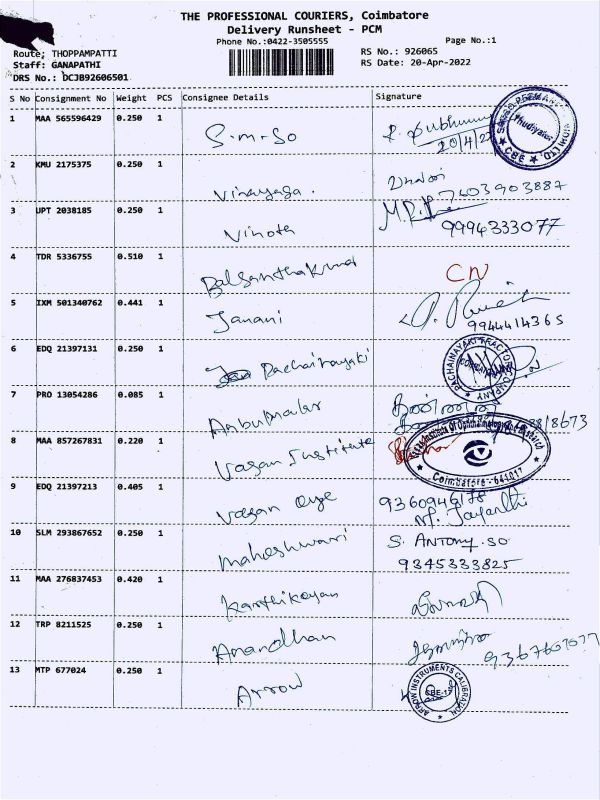 THE PROFESSIONAL COURIERS, Coimbatore
Delivery Runsheet - PCM
Phone No.:0422-3505555 Page No.:1
Route; THOPPAMPATTI RS No.: 926065
Staff: GANAPATHI RS Date: 20-Apr-2022
DRS No.: DCJB92606501
S No Consignment No Weight PCS Consignee Details Signature
1 MAA 565596429 0.250 1 S.m-So
20/4/22
Thudiyalur
CBE
2 KMU 2175375 0.250 1 Vinayaga. 7603903887
3 UPT 2038185 0.250 1 Vinoth 9994333077
4 TDR 5336755 0.510 1 CN
5 IXM 501340762 0.441 1 Janani 9944414365
6 EDQ 21397131 0.250 1 Pachainayaki
PACHAINAYAKI TRACTOR COMPANY
7 PRO 13054286 0.085 1 Anbumalar
8 MAA 857267831 0.220 1 Vasan Institute
Institute Of Ophthalmology & Research
Coimbatore - 641017
9 EDQ 21397213 0.405 1 Vasan eye 9360946178
M. Jayanthi
10 SLM 293867652 0.250 1 Maheshwari S. ANTONY.SO
9345333825
11 MAA 276837453 0.420 1 Karthikeyan
12 TRP 8211525 0.250 1 Anandhan
13 MTP 677024 0.250 1 Arrow
ARROW INSTRUMENTS CALIBRATION